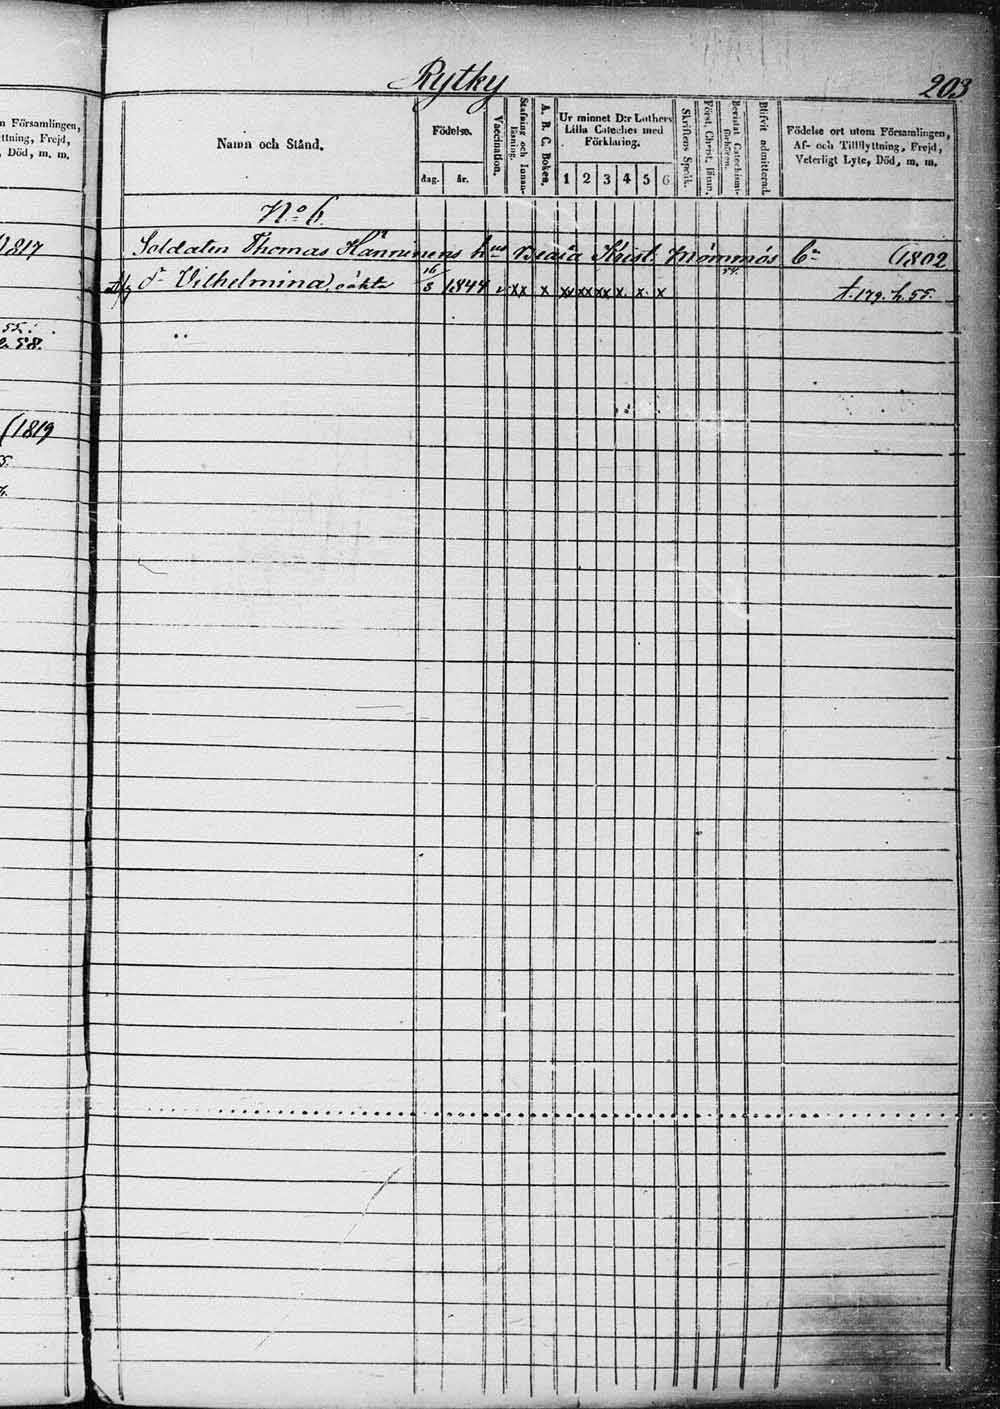 Rytky
203
n Församlingen,
yttning, Frejd,
, Död, m. m.
1817
55.
58.
(1819
Namn och Stånd.
Födelse.
dag.
år.
Vaccination.
Stafning och Innan-
läsning.
A. B. C. Boken.
Ur minnet D:r Luthers
Lilla Cateches med
Förklaring.
1 2 3 4 5 6
Skriftens Språk.
Först. Christ. lärun.
Bevistat Catechismi-
förhören.
Blifvit admitterad.
Födelse ort utom Församlingen,
Af- och Tillflyttning, Frejd,
Veterligt Lyte, Död, m. m.
No 6.
Soldaten Thomas Hänninens hus Beata Krist. (1802
dr Vilhelmina, oäkta 16/3 1844 v xx x x xx xx x x x 54. t. 179. h. 55.